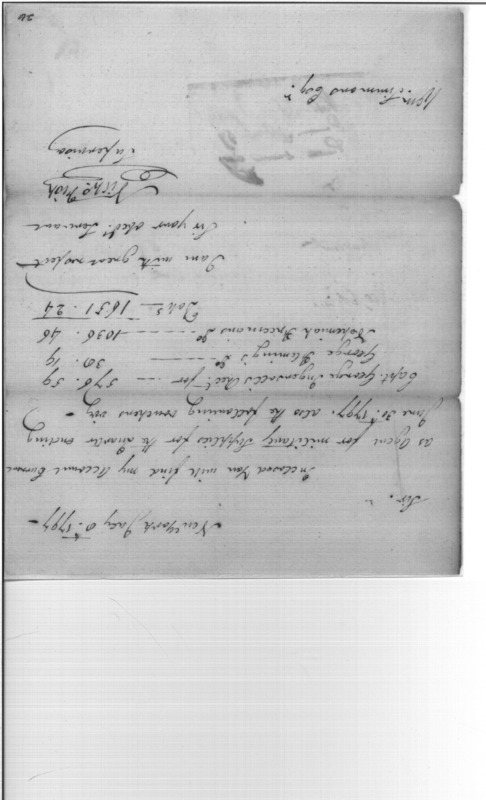 New York July 6th 1797
Sir.
Inclosed You will find my Account Current
as Agent for military Supplies for the quarter ending
June 31st 1797. also the following vouchers viz
Capt. George Ingersoll's Rect. for 576. 59
George Fleming's Do 30. 19
Nehemiah Freeman's Do 1036. 46
Dolls 1651. 24
I am with great respect
Sir your obedt. Servant
Nichs. Fish
Supervisor
Wm. Simmons Esqr.